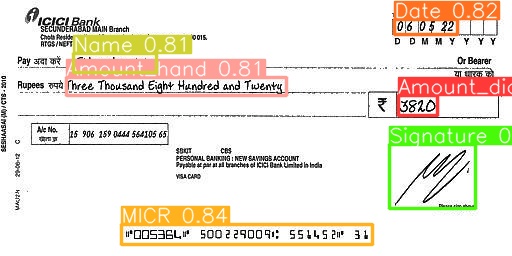 ICICI Bank
Date 0.82
SECUNDERABAD MAIN Branch
Chola Reside 015.
RTGS / NEFT
060522
D D M M Y Y Y Y
Name 0.81
Pay अदा करें Or Bearer
या धारक को
Amount_hand 0.81
Rupees रुपये Three Thousand Eight Hundred and Twenty
Amount_di
₹ 3820
A/c No. 15 906 159 0444 564105 65
Signature 0
SSKIT CBS
PERSONAL BANKING : NEW SAVINGS ACCOUNT
Payable at par at all branches of ICICI Bank Limited in India
VISA CARD
Please sign above
MICR 0.84
⑈005364⑈ 500229009⑆ 551452⑈ 31